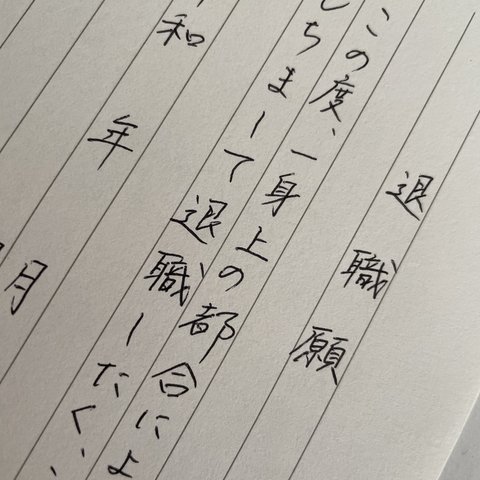 退職願
この度、一身上の都合によ
ちまして退職したく、
和 年 月